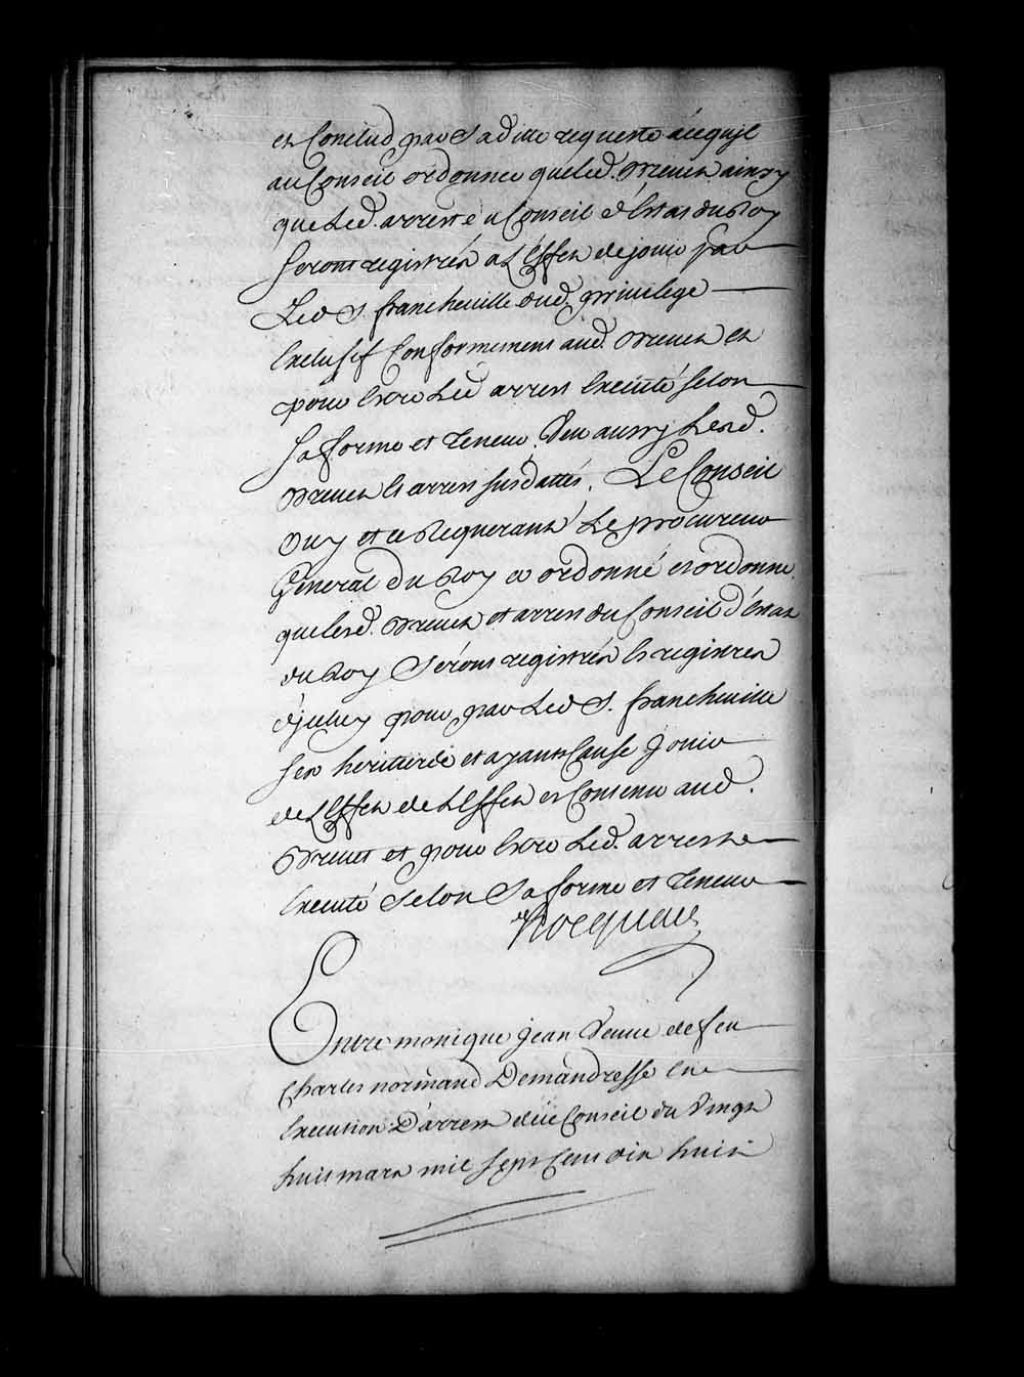 et Conclud par Saditte requeste acequil
au Conseil ordonner queled. Brevet ainsy
que Led. arrest du Conseil d'Estat du Roy
Seront registrés a L'Effet de jouir par
Led S. francheville dud. privilege
Exclusif Conformement aud. Brevet et
pour Estre Led arrest Executé selon
sa forme et teneur. Veu aussy Lesd.
Brevet et arrest susdattés. Le Conseil
Ouy et ce Requerant Le procureur
General du Roy a ordonné et ordonne
que lesd. Brevet et arrest du Conseil d'Estat
du Roy Seront registrés Es registres
d'jceluy pour par Led S. francheville
ses heritiers et ayant Cause Jouir
de L'Effet de L'Effet et Contenu aud.
Brevet et pour Estre Led. arrest
Executé Selon Sa forme et teneur
hocquart
Entre monique Jean Veuve de feu
Charles normand Demandresse En
Execution D'arrest de ce Conseil du Vingt
huit mars mil sept Cent dix huit